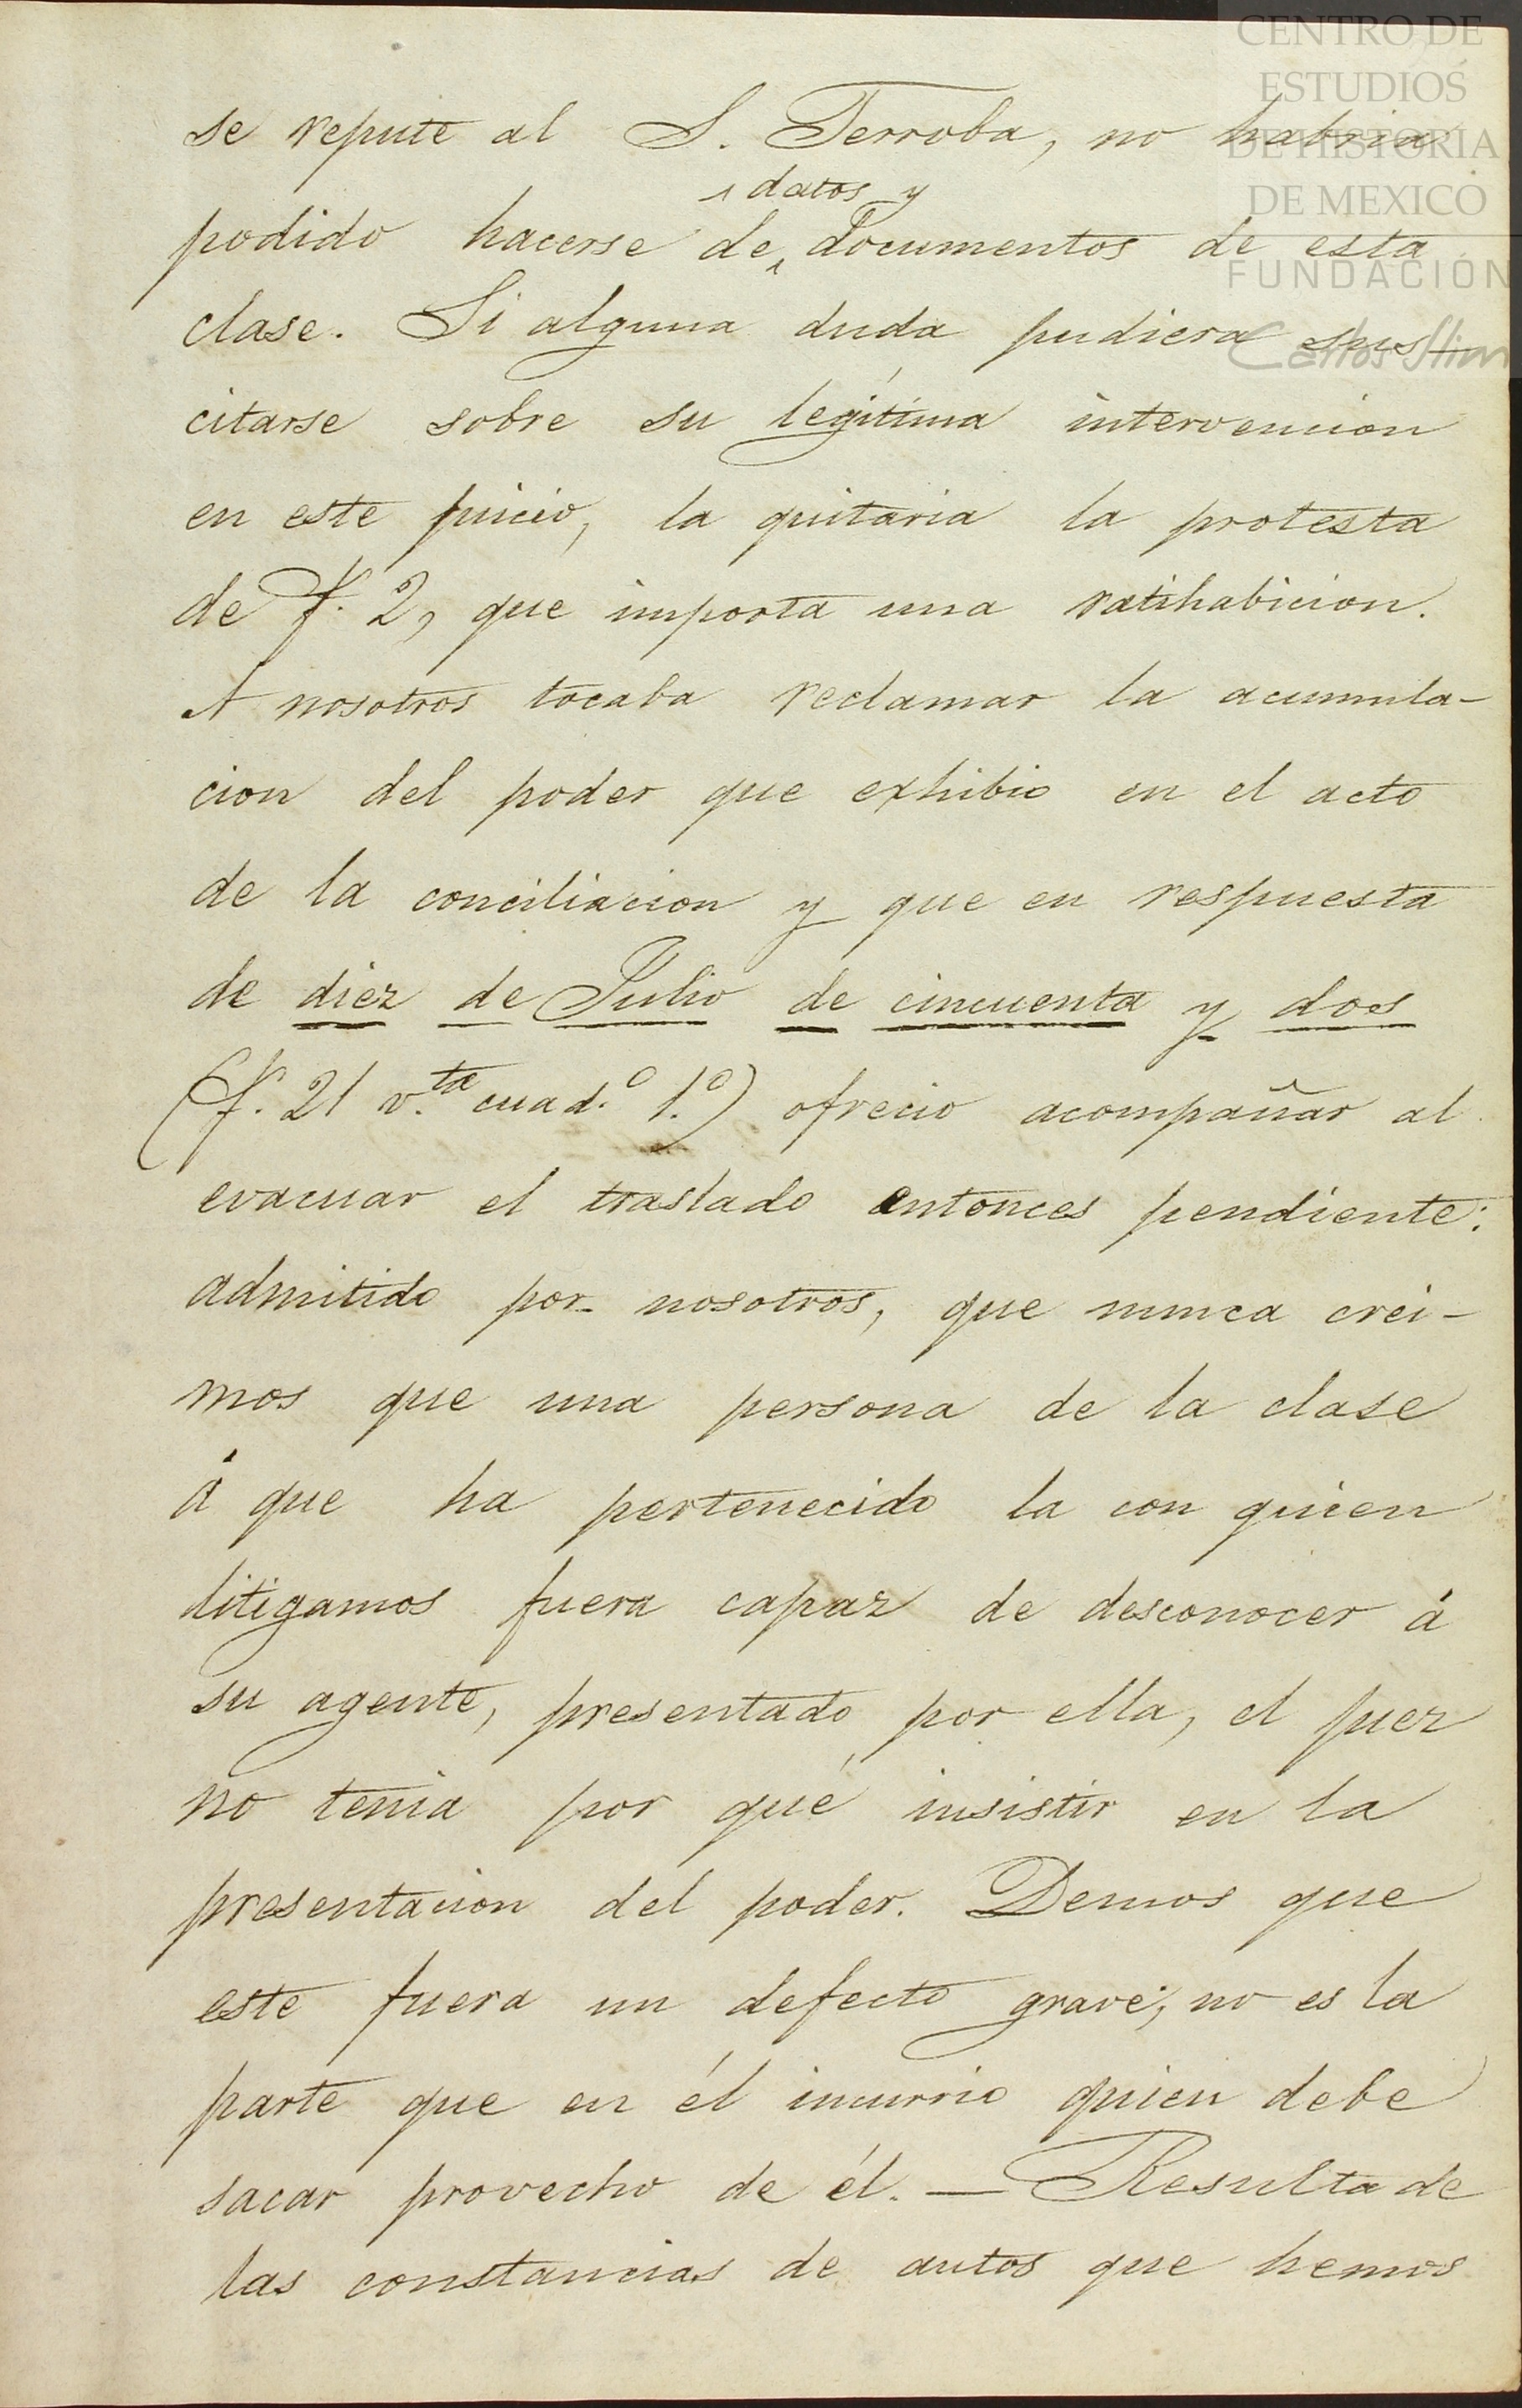 CENTRO DE
ESTUDIOS
DE HISTORIA
DE MEXICO
FUNDACIÓN
Carlos Slim
se repute al S. Terroba, no habria
datos y
podido hacerse de documentos de esta
clase. Si alguna duda pudiera sus-
citarse sobre su legítima intervencion
en este juicio, la quitaria la protesta
de f. 2, que importa una ratihabicion.
A nosotros tocaba reclamar la acumula-
cion del poder que exhibio en el acto
de la conciliacion y que en respuesta
de diez de Julio de cincuenta y dos
(f. 21 v.ta cuad.o 1.o) ofrecio acompañar al
evacuar el traslado entonces pendiente:
admitido por nosotros, que nunca crei-
mos que una persona de la clase
á que ha pertenecido la con quien
litigamos fuera capaz de desconocer á
su agente, presentado por ella, el juez
no tenia por qué insistir en la
presentacion del poder. Demos que
este fuera un defecto grave; no es la
parte que en él incurrio quien debe
sacar provecho de él. — Resulta de
las constancias de autos que hemos